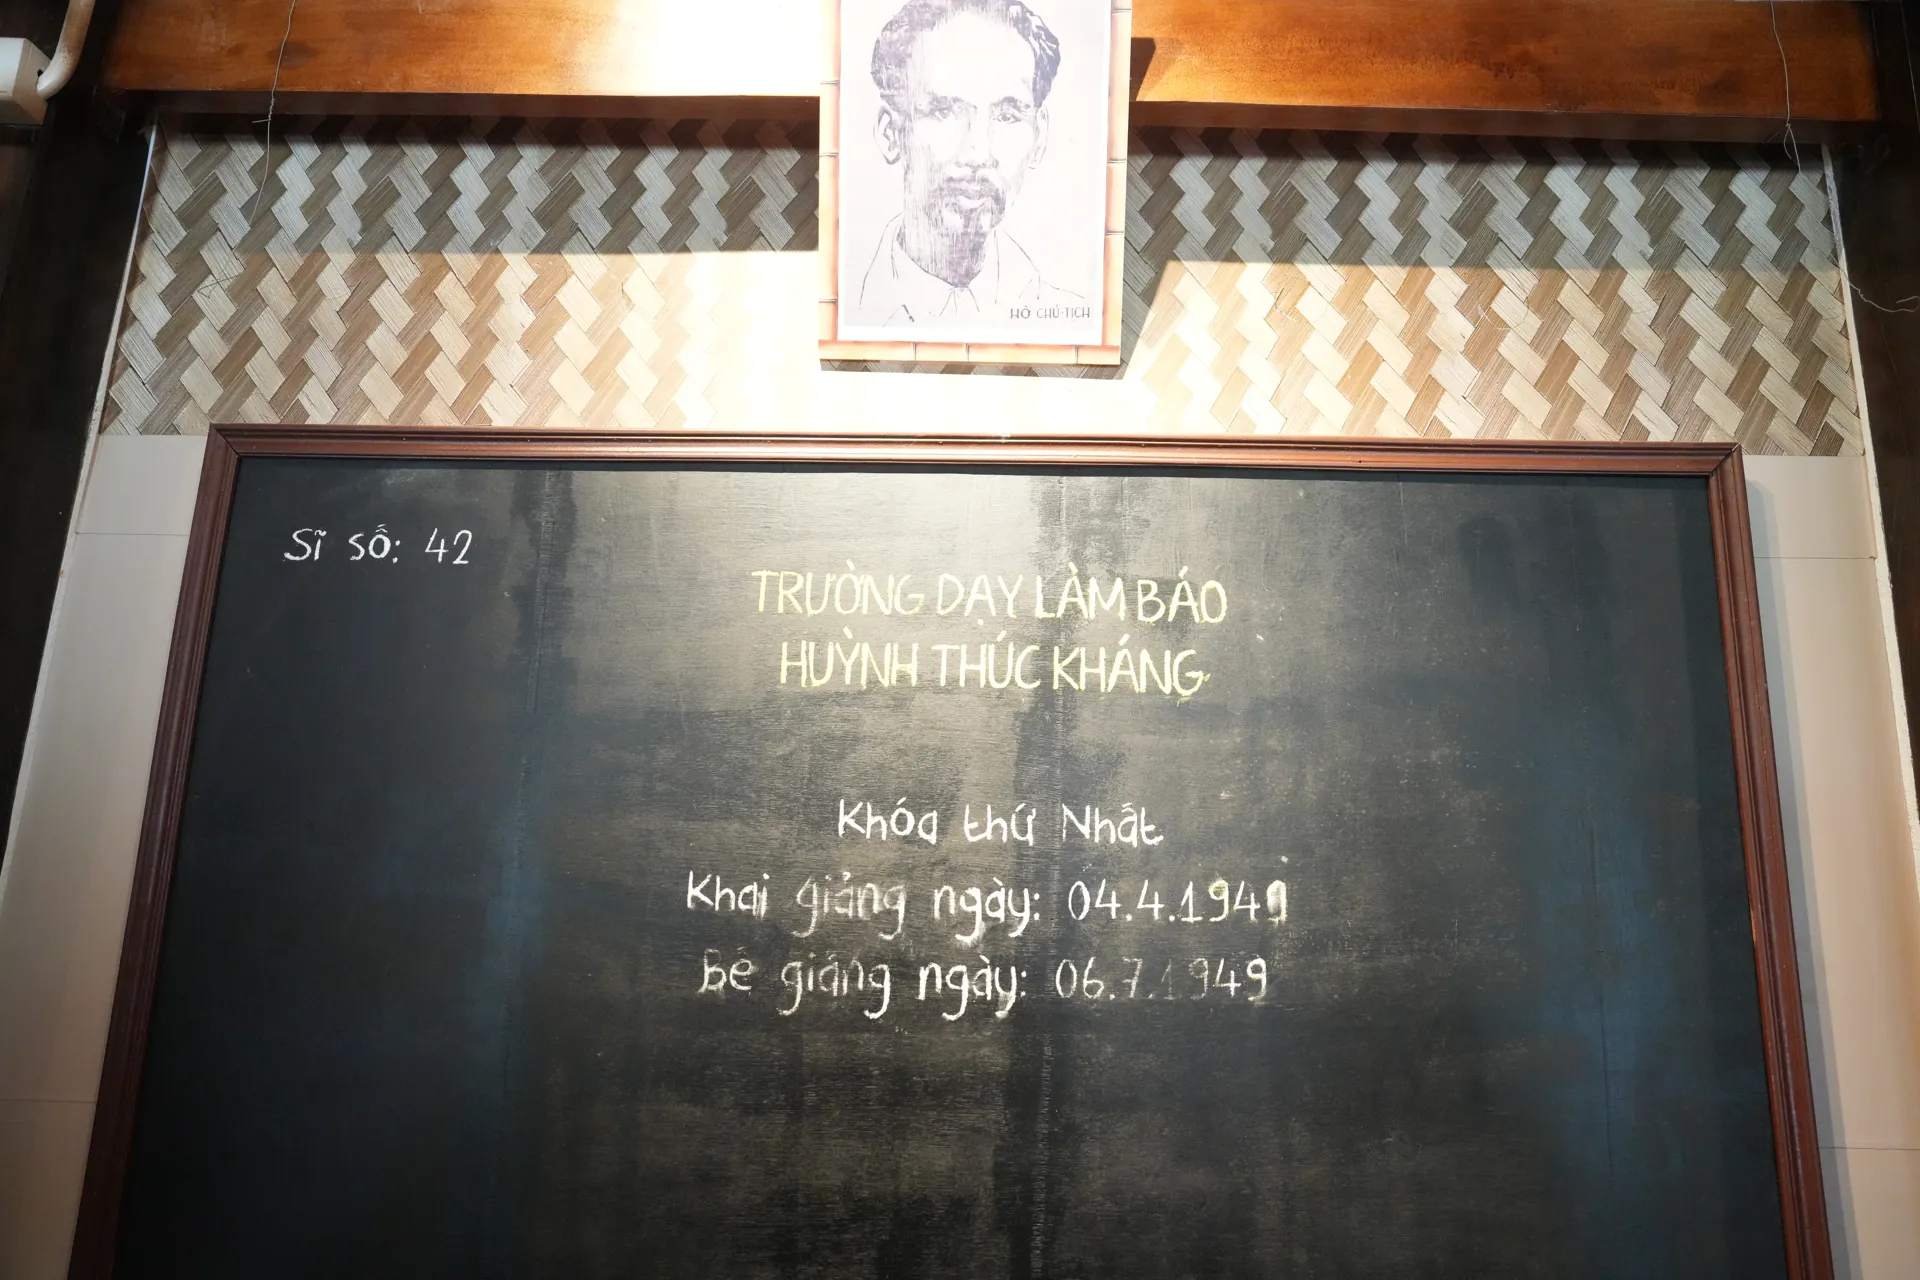 HỒ CHỦ-TỊCH
Sĩ số: 42
TRƯỜNG DẠY LÀM BÁO
HUỲNH THÚC KHÁNG
Khóa thứ Nhất
Khai giảng ngày: 04.4.1949
Bế giảng ngày: 06.7.1949